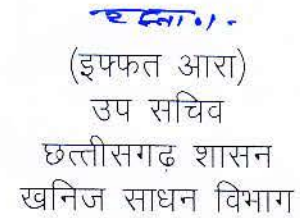 हस्ता./-
(इफ्फत आरा)
उप सचिव
छत्तीसगढ़ शासन
खनिज साधन विभाग